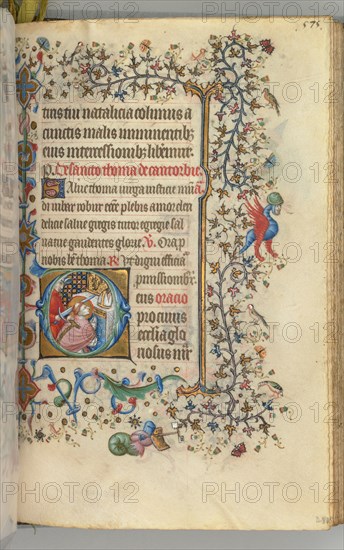 575.
tius tui natalicia colimus a
cunctis malis imminentibz
eius intercessionibz liberemur.
De sancto thoma de cantorbie.
Salue thoma uirga iusticie
robur ecclesie plebis amor cleri
delicie salue gregis tutor egregie sal
ue gaudentes glorie. V. Ora p
nobis bte thoma. R. Vt digni efficia
promissionibz
oratio
pro cuius
ecclesia glo
riosus
PHOTO12